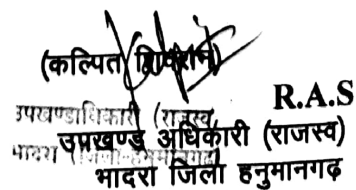 (कल्पित शिवरान)
R.A.S
उपखण्डाधिकारी (राजस्व)
उपखण्ड अधिकारी (राजस्व)
भादरा
भादरा जिला हनुमानगढ़